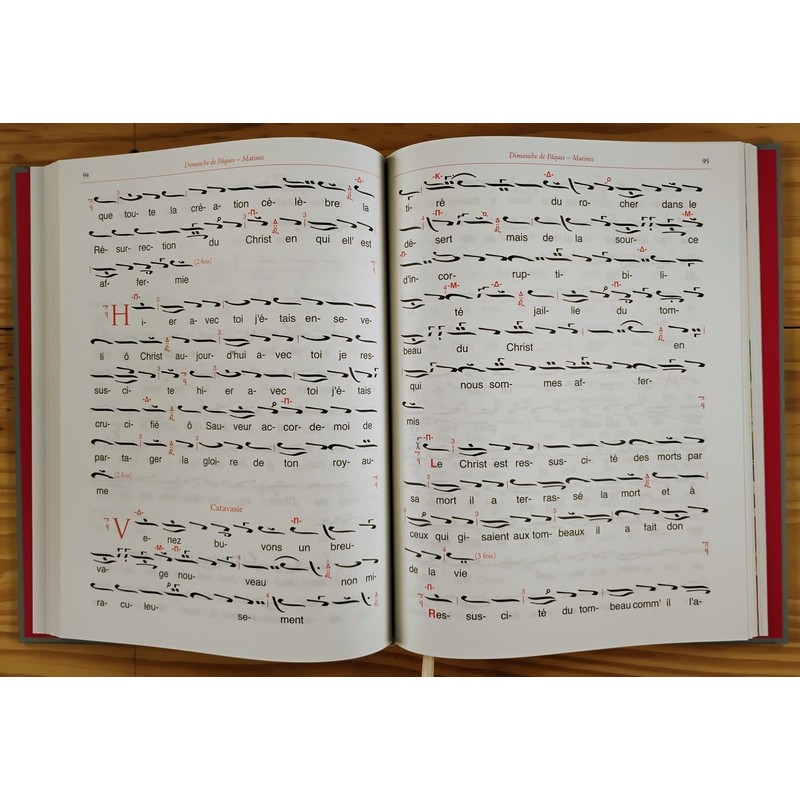 94
Dimanche de Pâques – Matines
que tou- te la cré- a- tion cé- lè- bre la
Ré- sur- rec- tion du Christ en qui ell' est
af- fer- mie (2 fois)
Hi- er a- vec toi j'é- tais en- se- ve-
li ô Christ au- jour- d'hui a- vec toi je res-
sus- ci- te hi- er a- vec toi j'é- tais
cru- ci- fié ô Sau- veur ac- cor- de- moi de
par- ta- ger la gloi- re de ton roy- au-
me (2 fois)
Catavasie
Ve- nez bu- vons un breu-
va- ge nou- veau non mi-
ra- cu- leu- se- ment
Dimanche de Pâques – Matines
95
ti- ré du ro- cher dans le
dé- sert mais de la sour- ce
d'in- cor- rup- ti- bi- li-
té jail- lie du tom-
beau du Christ en
qui nous som- mes af- fer-
mis
Le Christ est res- sus- ci- té des morts par
sa mort il a ter- ras- sé la mort et à
ceux qui gi- saient aux tom- beaux il a fait don
de la vie (3 fois)
Res- sus- ci- té du tom- beau comm' il l'a-